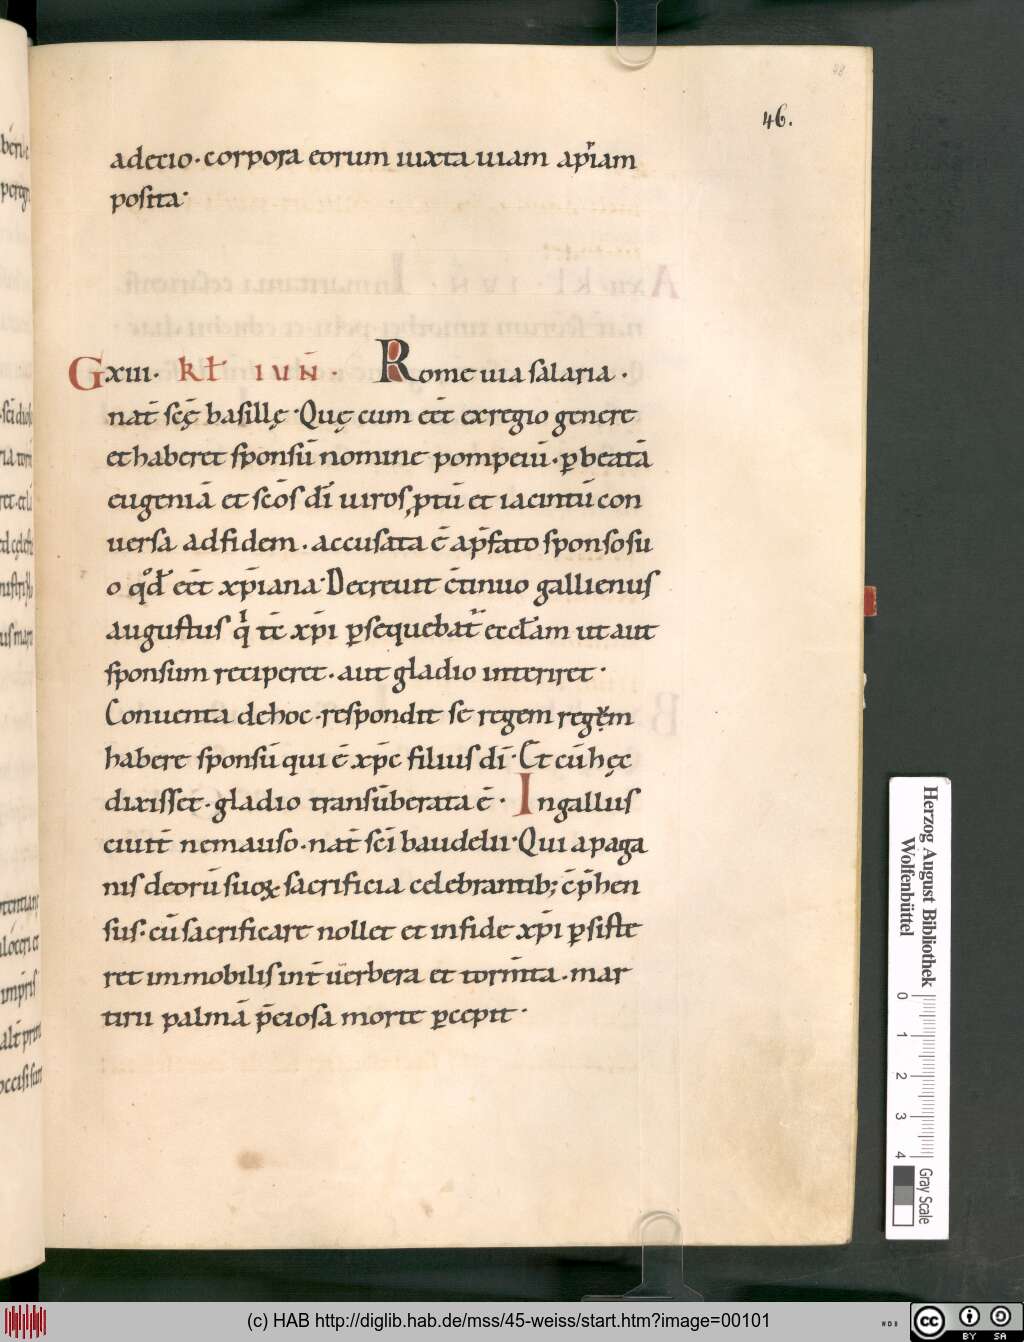 48
46.
adecio. corpora eorum iuxta uiam apriam
posita.
G xiii. kł iun̄. Rome uia salaria.
nat̄ scę̄ basillę. Quę cum eēt exregio genere
et haberet sponsū nomine pompeiū. ꝑ beatā
eugeniā et scōs dī uiros ptū et iacintū con
uersa ad fidem. accusata ē ap̄fato sponso su
o qd̄ eēt xp̄iana. Decreuit c̄tinuo gallienus
augustus q tc̄ xp̄i ꝑsequebat̄ eccłam ut aut
sponsum reciperet. aut gladio interiret.
Conuenta dehoc. respondit se regem regem
habere sponsū qui ē xp̄c filius dī. Et cū hęc
dixisset. gladio transūberata ē. In gallus
ciuit̄ nemauso. nat̄ scī baudelii. Qui a paga
nis deorū suoꝝ sacrificia celebrantib; c̄p̄hen
sus. cū sacrificare nollet et in fide xp̄i ꝑsiste
ret immobilis int̄ uerbera et torm̄ta. mar
tirii palmā p̄ciosa morte ꝑcepit.
Herzog August Bibliothek
Wolfenbüttel
0 1 2 3 4
Gray Scale
(c) HAB http://diglib.hab.de/mss/45-weiss/start.htm?image=00101
WDB
cc BY SA